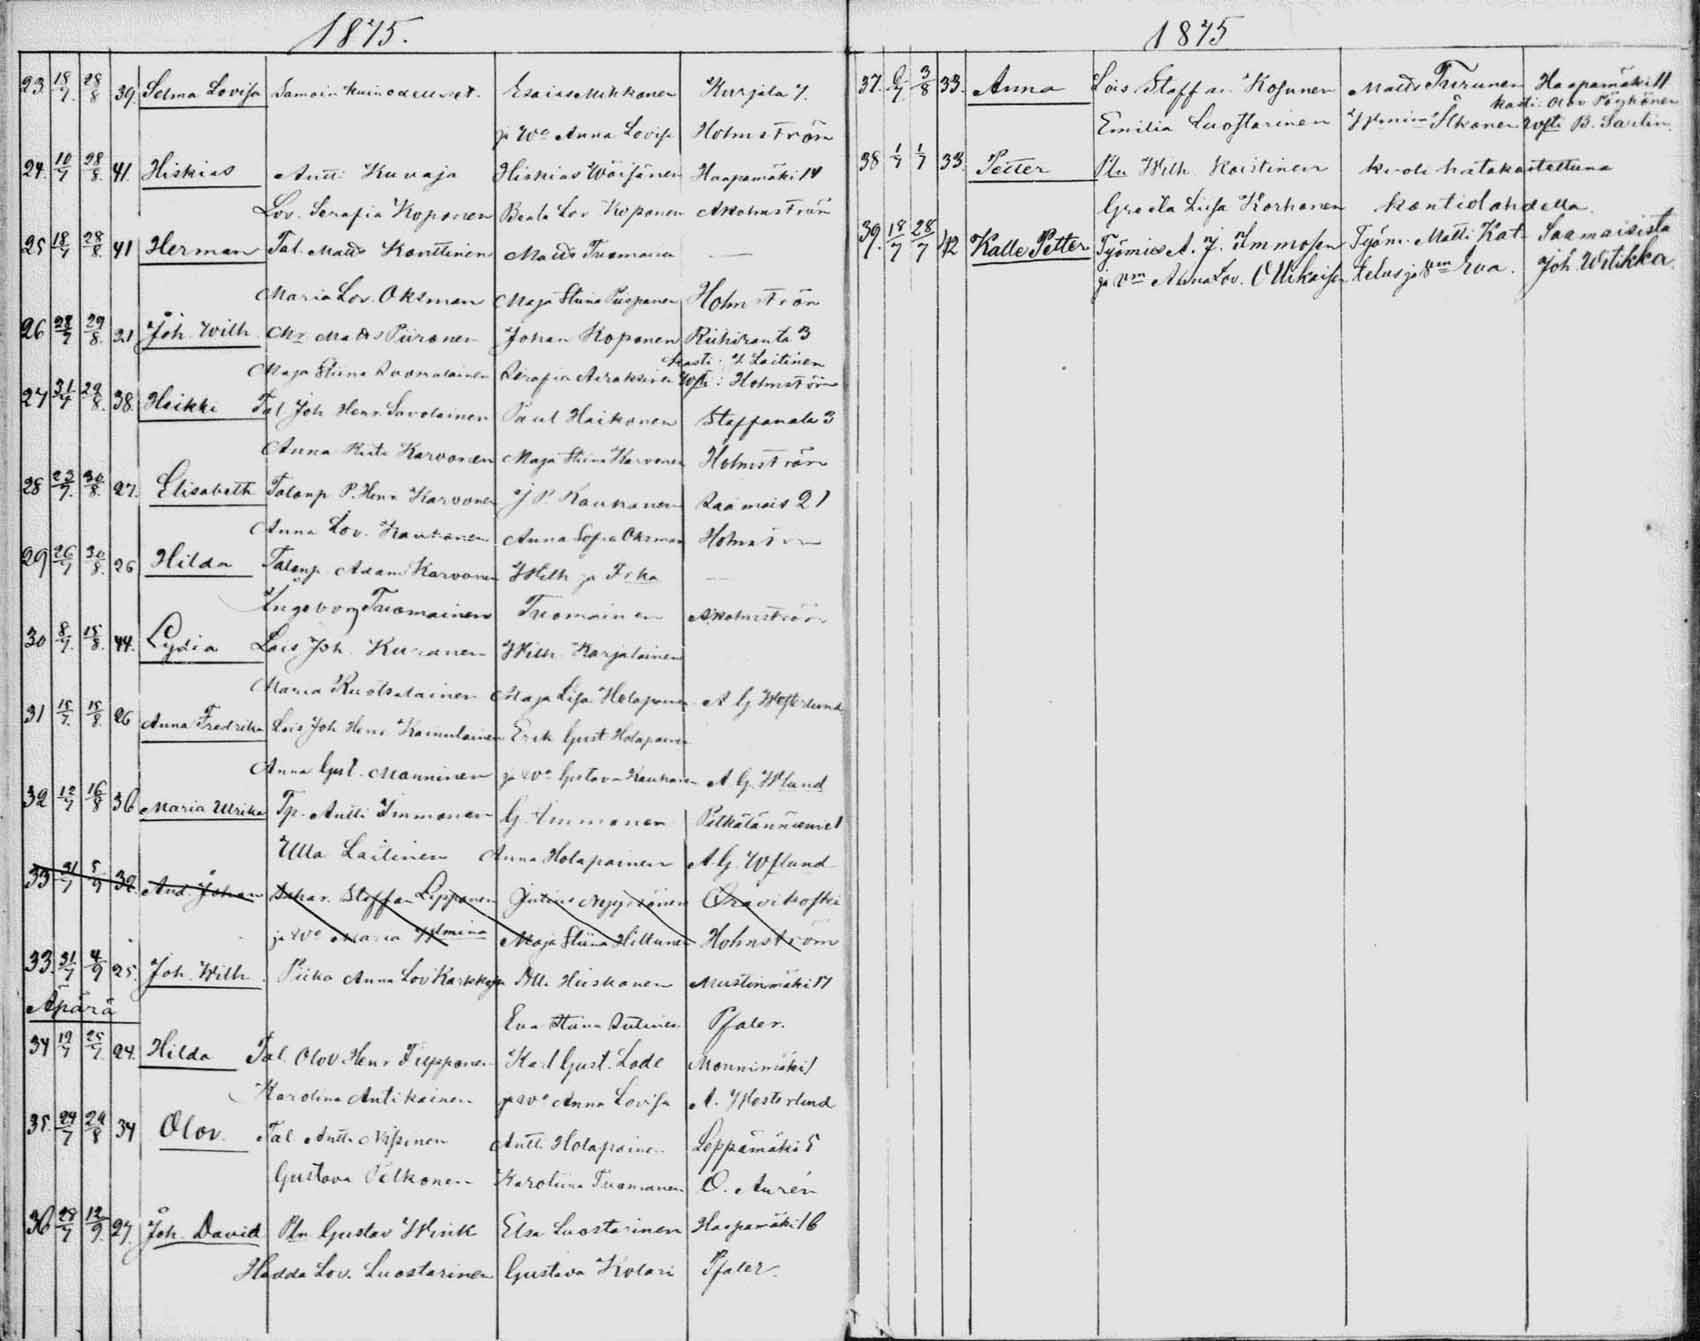 1875.
23 18/7 28/8 39. Selma Lovisa Samoin kuin edelliset. Esaias Mikkonen Kurjala 7.
ja Wo Anna Lovisa Holmström
24. 10/7 28/8 41. Hiskias Antti Kuvaja Hiskias Wäisänen Haapamäki 14
Lov. Serafia Koponen Beata Lov Koponen A Holmström
25 18/7 28/8 41 Herman Tal. Matts Konttinen Matts Tuomainen —
Maria Lov. Oksman Maja Stiina Puspanen Holmström
26 28/7 29/8. 31 Joh. Wilh. Matts Piironen Johan Koponen Riihiranta 3
kasti: J. Laitinen
Maja Stiina Suomalainen Serafia Airaksinen Holmström
27 31/7 29/8. 38. Heikki Tal Joh Henr Savolainen Paul Haikonen Staffanala 3
Anna Karvonen Maja Stiina Karvonen Holmström
28 23/7. 30/8. 27. Elisabeth Talonp P. Henr Karvonen J P Kaukonen Saamais 21
Anna Lov. Kaukonen Anna Sofia Oksman
29 26/7 30/8. 26 Hilda Talonp Adam Karvonen Wilh ja Fr:ka —
Ingeborg Tuomainen Tuomainen A Holmström
30 8/7. 15/8. 44. Lydia Lois Joh. Kuranen Wilh. Karjalainen —
Maria Ruotsalainen Maja Lisa Holapainen A G Westerlund
31 15/7. 15/8. 26 Anna Fredrika Lois Joh Henr Kainulainen Erik Gust Holapainen
Anna Gust. Manninen ja Wo Gustava Kaukonen A. G. Wlund
32 12/7 16/8 36 Maria Ulrika Tp. Antti Immonen G. Immonen
Ulla Laitinen Anna Holapainen A. G. Wslund
33 21/7 5/9 32. And. Johan Staffan Lipponen Oravikoski
ja Wo Maria Wilmina Maja Stiina Hiltunen Holmström
33. 31/7 4/9 25. Joh. Wilh. Piika Anna Lov Karkkajn Olli Hiiskonen Mustinmäki 17
Äpärä
Eva Stiina Pfaler.
34 19/7 25/7. 24. Hilda Tal. Olov Henr Filpponen Karl Gust. Lode Monnimäki 1
Karolina Antikainen ja Wo Anna Lovisa A. Westerlund
35. 24/7 24/8 34 Olov. Tal Antti Nissinen Antti Holapainen Leppämäki 5
Gustava Pelkonen Karoliina Tuomainen O. Aurén
36 28/7 12/9. 27. Joh. David Pln Gustav Wink Elsa Luostarinen Haapamäki 16
Hedda Lov. Luostarinen Gustava Kolari Pfaler.
1875
37. 6/7 3/8 33. Anna Lois Staffan Kosunen Matts Turunen Haapamäki 11
kasti: Olov Pöyhönen
Emilia Luostarinen Wilmina Ilkonen B. Sartin.
38 1/7 1/7 33. Petter Pln Wilh. Koistinen k: oli hätäkastettuna
Greeta Liisa Korhonen kontiolahdella.
39. 18/7 28/7 42 Kalle Petter Työmies A. J. Immosen Työm. Matti Kat- Saamaisista
ja Vm Anna Lov. Ollikaisen telus ja Vm Eva. Joh. Witikka.